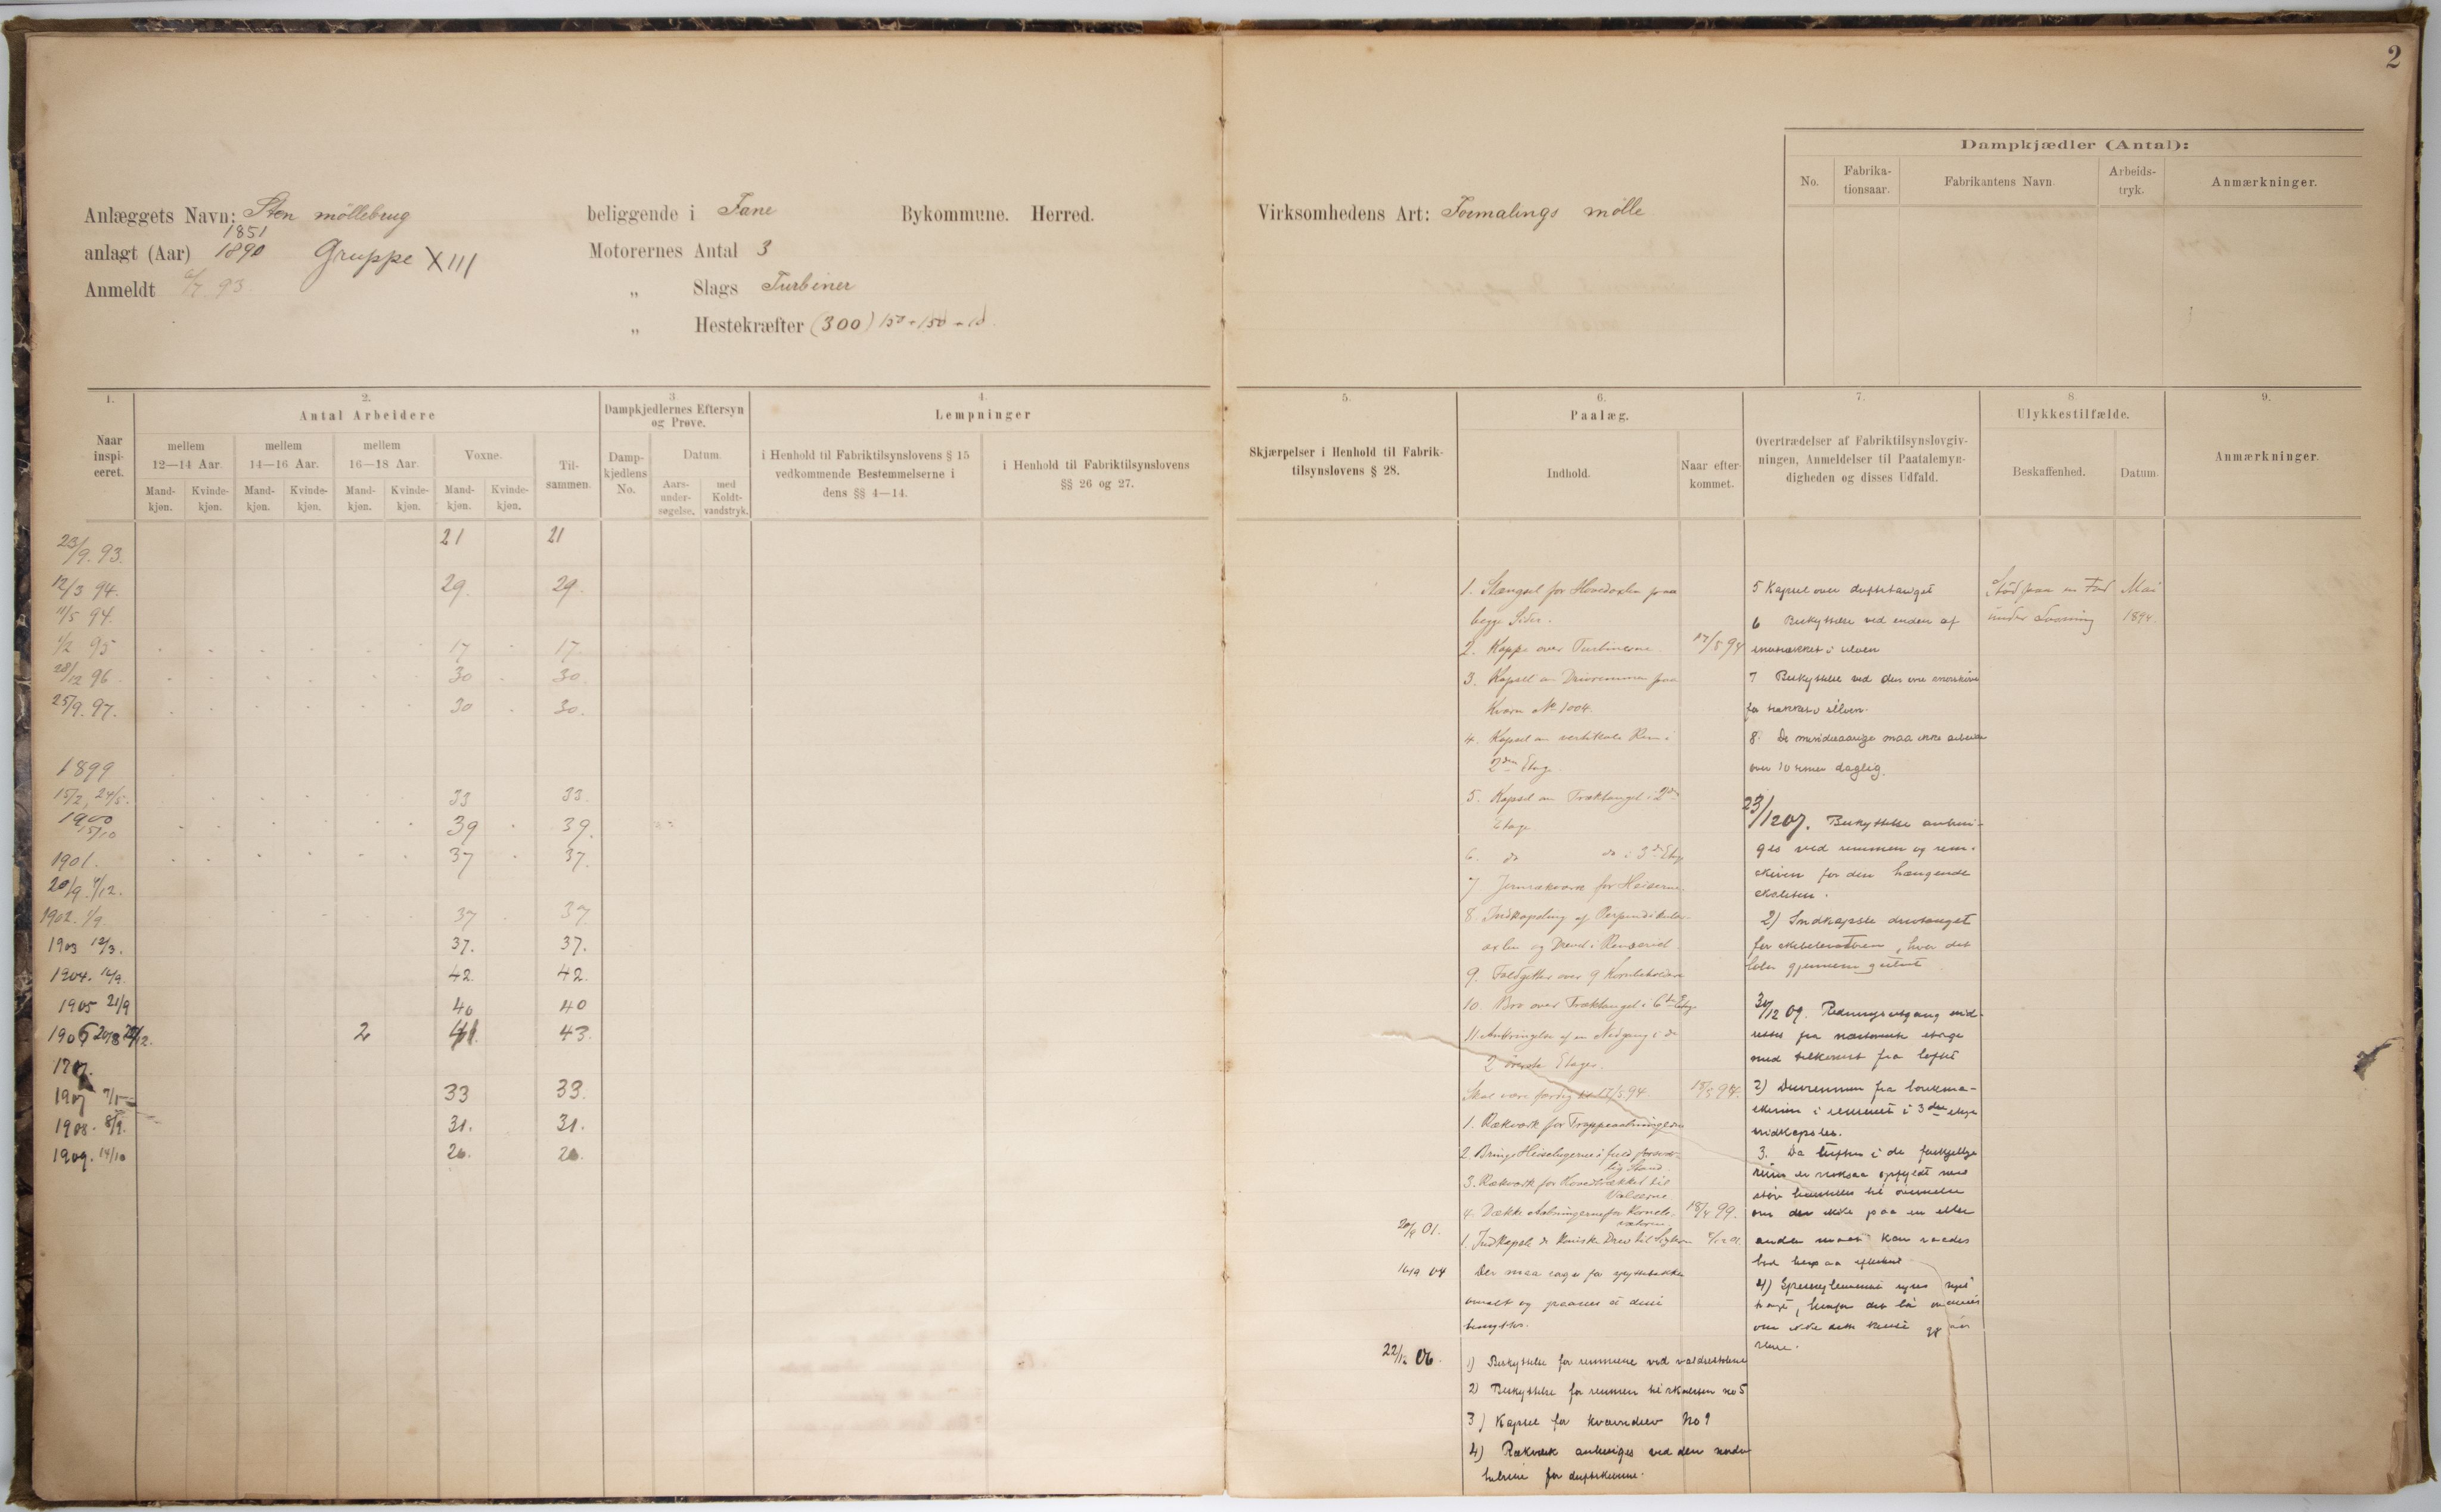 2
Anlæggets Navn: Sten möllebrug
beliggende i Fane Bykommune. Herred.
1851
anlagt (Aar) 1890 Gruppe XIII
Motorernes Antal 3
Anmeldt 6/7 93.
„ Slags Turbiner
„ Hestekræfter (300) 150 + 150 + 10.
Virksomhedens Art: Formalings mølle
Dampkjædler (Antal):
No. Fabrika-tionsaar. Fabrikantens Navn. Arbeids-tryk. Anmærkninger.
1. 2. 3 4.
Antal Arbeidere
Dampkjedlernes Eftersyn
og Prøve.
Lempninger
Naar
inspi-
ceret.
mellem
12—14 Aar.
mellem
14—16 Aar.
mellem
16—18 Aar.
Voxne.
Til-
sammen.
Damp-
kjedlens
No.
Datum.
Aars-
under-
søgelse.
med
Koldt-
vandstryk.
i Henhold til Fabriktilsynslovens § 15
vedkommende Bestemmelserne i
dens §§ 4—14.
i Henhold til Fabriktilsynslovens
§§ 26 og 27.
Mand-kjøn. Kvinde-kjøn. Mand-kjøn. Kvinde-kjøn. Mand-kjøn. Kvinde-kjøn. Mand-kjøn. Kvinde-kjøn.
23/9. 93. 21 21
12/3 94. 29. 29.
11/5 94.
1/2 95 17 17.
28/12 96. 30 30.
25/9. 97. 30 30.
1899
15/2, 24/5. 33 33.
1900
15/10 39 39.
1901. 37 37.
20/9. 4/12.
1902. 1/9 37 37
1903 12/3. 37. 37.
1904. 16/9. 42. 42.
1905 21/9 40 40
1906 20/8 22/12. 2 41. 43.
1907.
1907 33 33.
1908. 8/9. 31. 31.
1909. 14/10 26. 26.
5. 6. 7. 8. 9.
Skjærpelser i Henhold til Fabrik-
tilsynslovens § 28.
Paalæg.
Indhold.
Naar efter-
kommet.
Overtrædelser af Fabriktilsynslovgiv-
ningen, Anmeldelser til Paatalemyn-
digheden og disses Udfald.
Ulykkestilfælde.
Beskaffenhed.
Datum.
Anmærkninger.
1. Stængsel for Hovedaxlen paa
begge Sider.
2. Kappe over Turbinerne. 17/5 94
3. Kapsel om Drivremmen paa
Kværn No 1004.
4. Kapsel om vertikale Rem i
2den Etage.
5. Kapsel om Træktauget i 2den
Etage
6. do do i 3die Etage
7 Jernrækværk for Heiserne.
8. Indkapsling af Perpendikulær-
axlen og Drevet i Renseriet.
9. Faldgitter over 9 Kornbeholdere
10. Bro over Træktauget i 6te Etage
11. Anbringelse af en Nedgang i de
2 øverste Etager.
Skal være færdig 15/5 94. 15/5 94.
1. Rækværk for Trappeaabningerne
2. Bringe Heiselugerne i fuld forsvar-
lig Stand.
3. Rækværk for Hovedtrækket til
Valserne
4. Dække Aabningerne for Kornele-
vatorne. 18/4 99.
20/9 01. 1. Indkapsle de koniske Drev til
16/9 04 Der maa sørges for spyttebakker
overalt og paasees at disse
benyttes.
22/12 06. 1) Beskyttelse for remmene ved valdsestolene
2) Beskyttelse for remmen til No 5
3) Kapsel for kværndrev No 9
4) Rækværk anbringes ved den
5 Kapsel over drifttauget
6 Beskyttelse ved enden af
7 Beskyttelse ved den øvre
8. De mindreaarige maa ikke arbeide
over 10 timer daglig.
23/12 07. Beskyttelse anbrin-
ges ved remmen og rem-
skiven for den hængende
2) Indkapsle drivtauget
for, hvor det
løber gjennem gulvet
30/12 09. Redningsutgang ind-
rettes fra næstøverste etage
med fra loftet
2) Drivremmen fra
i renseriet i 3die etage
indkapsles.
3. Da luften i de forskjellige
rum er meget opfyldt med
støv henstilles til overveielse
om der ikke paa en eller
anden maade kan raades
bod herpaa
4)
Stød paa en Fod
under Losning
Mai
1894.